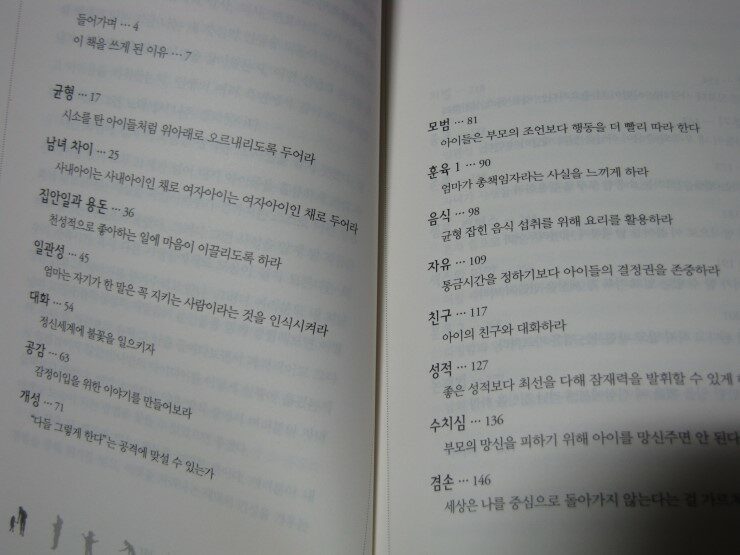 들어가며 … 4
이 책을 쓰게 된 이유 … 7
균형 … 17
시소를 탄 아이들처럼 위아래로 오르내리도록 두어라
남녀 차이 … 25
사내아이는 사내아이인 채로 여자아이는 여자아이인 채로 두어라
집안일과 용돈 … 36
천성적으로 좋아하는 일에 마음이 이끌리도록 하라
일관성 … 45
엄마는 자기가 한 말은 꼭 지키는 사람이라는 것을 인식시켜라
대화 … 54
정신세계에 불꽃을 일으키자
공감 … 63
감정이입을 위한 이야기를 만들어보라
개성 … 71
“다들 그렇게 한다”는 공격에 맞설 수 있는가
모범 … 81
아이들은 부모의 조언보다 행동을 더 빨리 따라 한다
훈육 1 … 90
엄마가 총책임자라는 사실을 느끼게 하라
음식 … 98
균형 잡힌 음식 섭취를 위해 요리를 활용하라
자유 … 109
통금시간을 정하기보다 아이들의 결정권을 존중하라
친구 … 117
아이의 친구와 대화하라
성적 … 127
좋은 성적보다 최선을 다해 잠재력을 발휘할 수 있게
수치심 … 136
부모의 망신을 피하기 위해 아이를 망신주면 안 된다
겸손 … 146
세상은 나를 중심으로 돌아가지 않는다는 걸